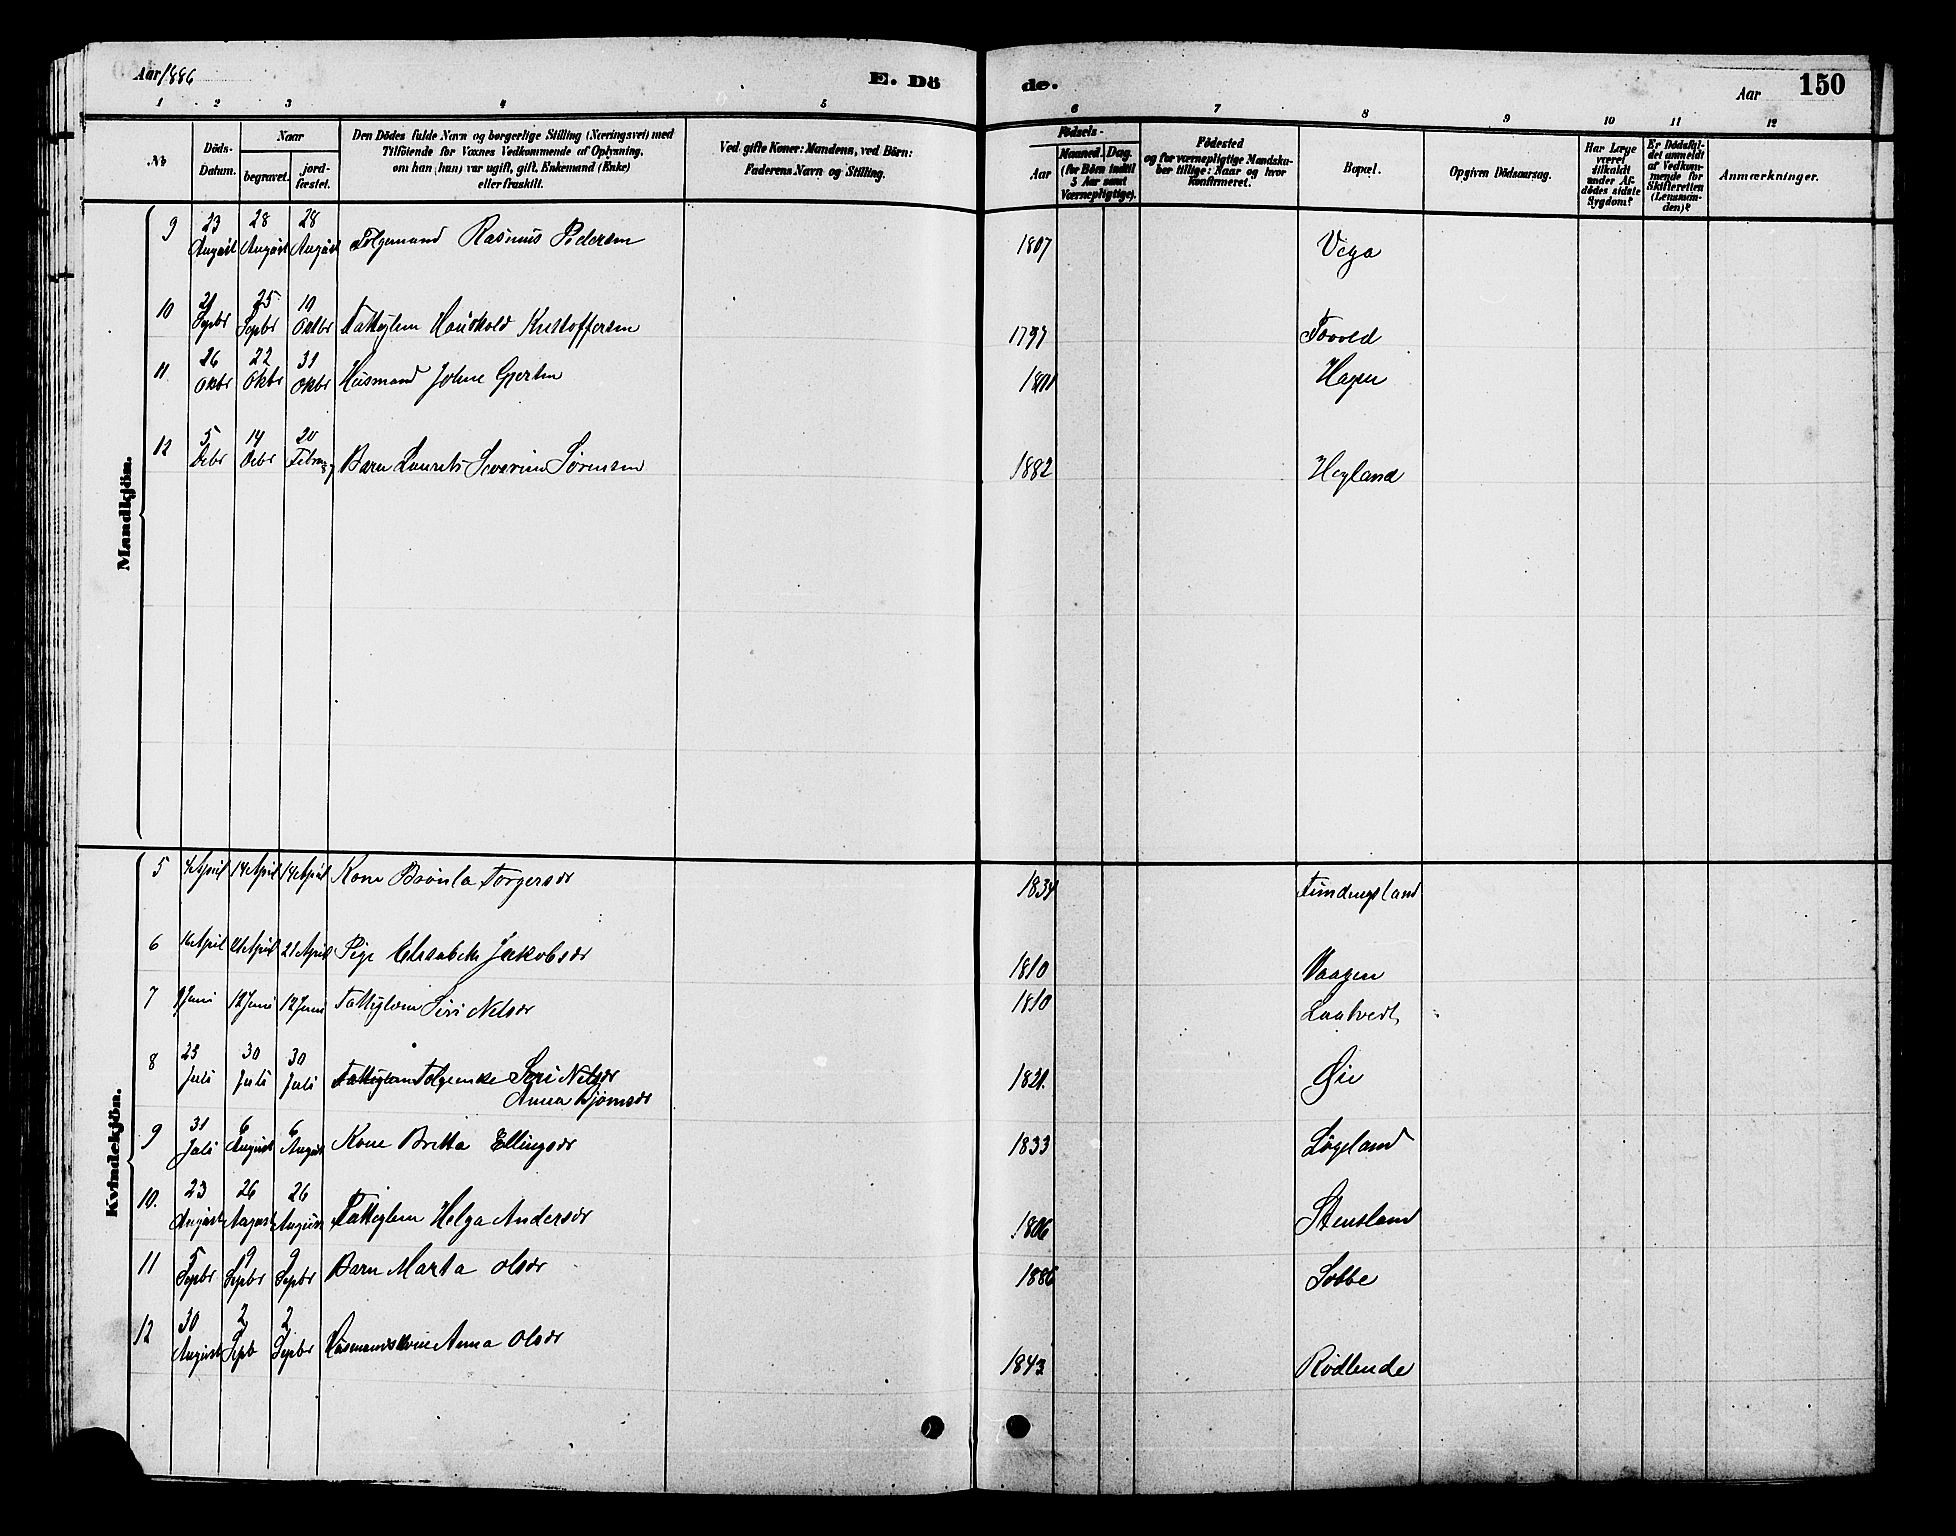 Aar 1886
E. Dö
de.
Aar
150
1 2 3 4 5 6 7 8 9 10 11 12
No
Döds-
Datum.
Naar
begravet.
jord-
fæstet.
Den Dödes fulde Navn og borgerlige Stilling (Næringsvei) med
Tilföiende for Voxnes Vedkommende af Oplysning,
om han (hun) var ugift, gift, Enkemand (Enke)
eller fraskilt.
Ved gifte Koner: Mandens, ved Börn:
Faderens Navn og Stilling.
Födsels-
Aar
Maaned. Dag.
(for Börn indtil
5 Aar samt
Værnepligtige).
Födested
og for værnepligtige Mandska-
ber tillige: Naar og hvor
konfirmeret.
Bopæl.
Opgiven Dödsaarsag.
Har Læge
været
tilkaldt
under Af-
dödes sidste
Sygdom?
Er Dödsfal-
det anmeldt
af Vedkom-
mende for
Skifteretten
(Lensman-
den)?
Anmærkninger.
Mandkjön.
9 23 August 28 August 28 August Folgemand Rasmus Pedersen 1807 Vega
10 21 Sepbr 25 Sepbr 10 Oktbr Fattiglem Kristoffersen 1797
11 Okbr 22 Okbr 31 Okbr Husmand Johne Gjertsen Hagen
12 5 Debr 14 Debr 20 Barn Laurits Severin Sørensen 1882 Hegland
Kvindekjön.
5 4 April 14 April 14 April Kone Torgersdr 1834
6 16 April 21 April 21 April Pige Elisabeth Jakobsdr 1810 Vaagen
7 9 Juni 12 Juni 12 Juni Fattiglem Siri Nelsdr 1810
8 23 Juli 30 Juli 30 Juli Fattiglem Folgeenke Seri Nelsdr 1821. Øie
Anna Bjørnsdr
9 31 Juli 6 August 6 August Kone Britta Ellingsdr 1833 Løgeland
10. 23 August 26 August 26 August Fattiglem Helga Andersdr 1806 Stensland
11 5 Sepbr 9 Sepbr 9 Sepbr Barn Marta Olsdr 1886 Sobbe
12 30 August 2 Sepb 2 Sepbr Husmandskone Anna Olsdr 1843 Rødlende